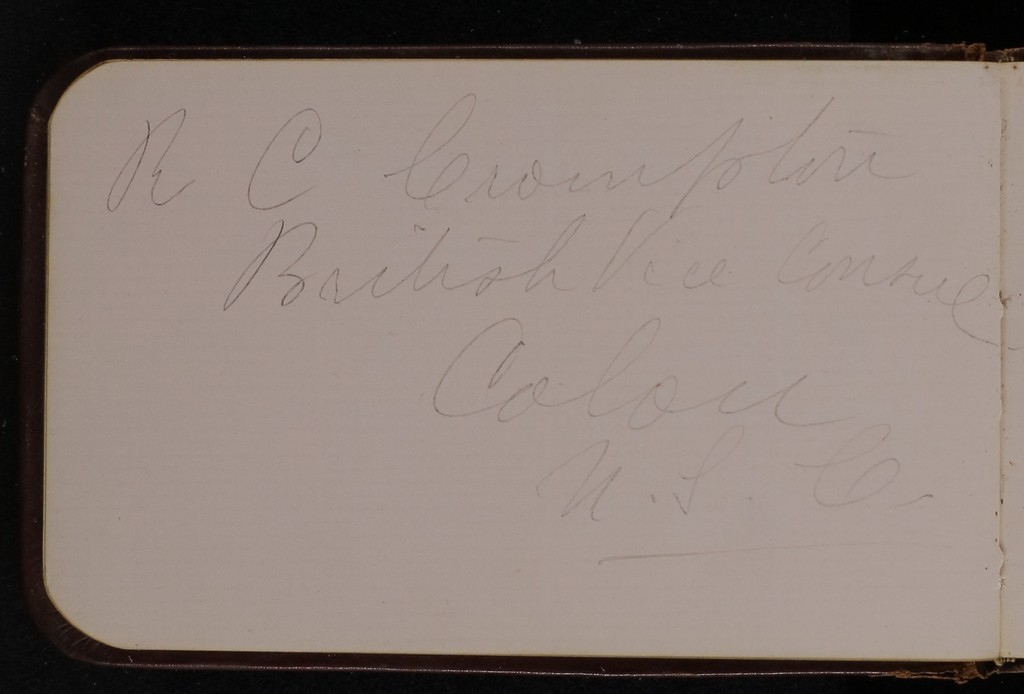 R C Crompton
British Vice Consul
Colon
U. S. C